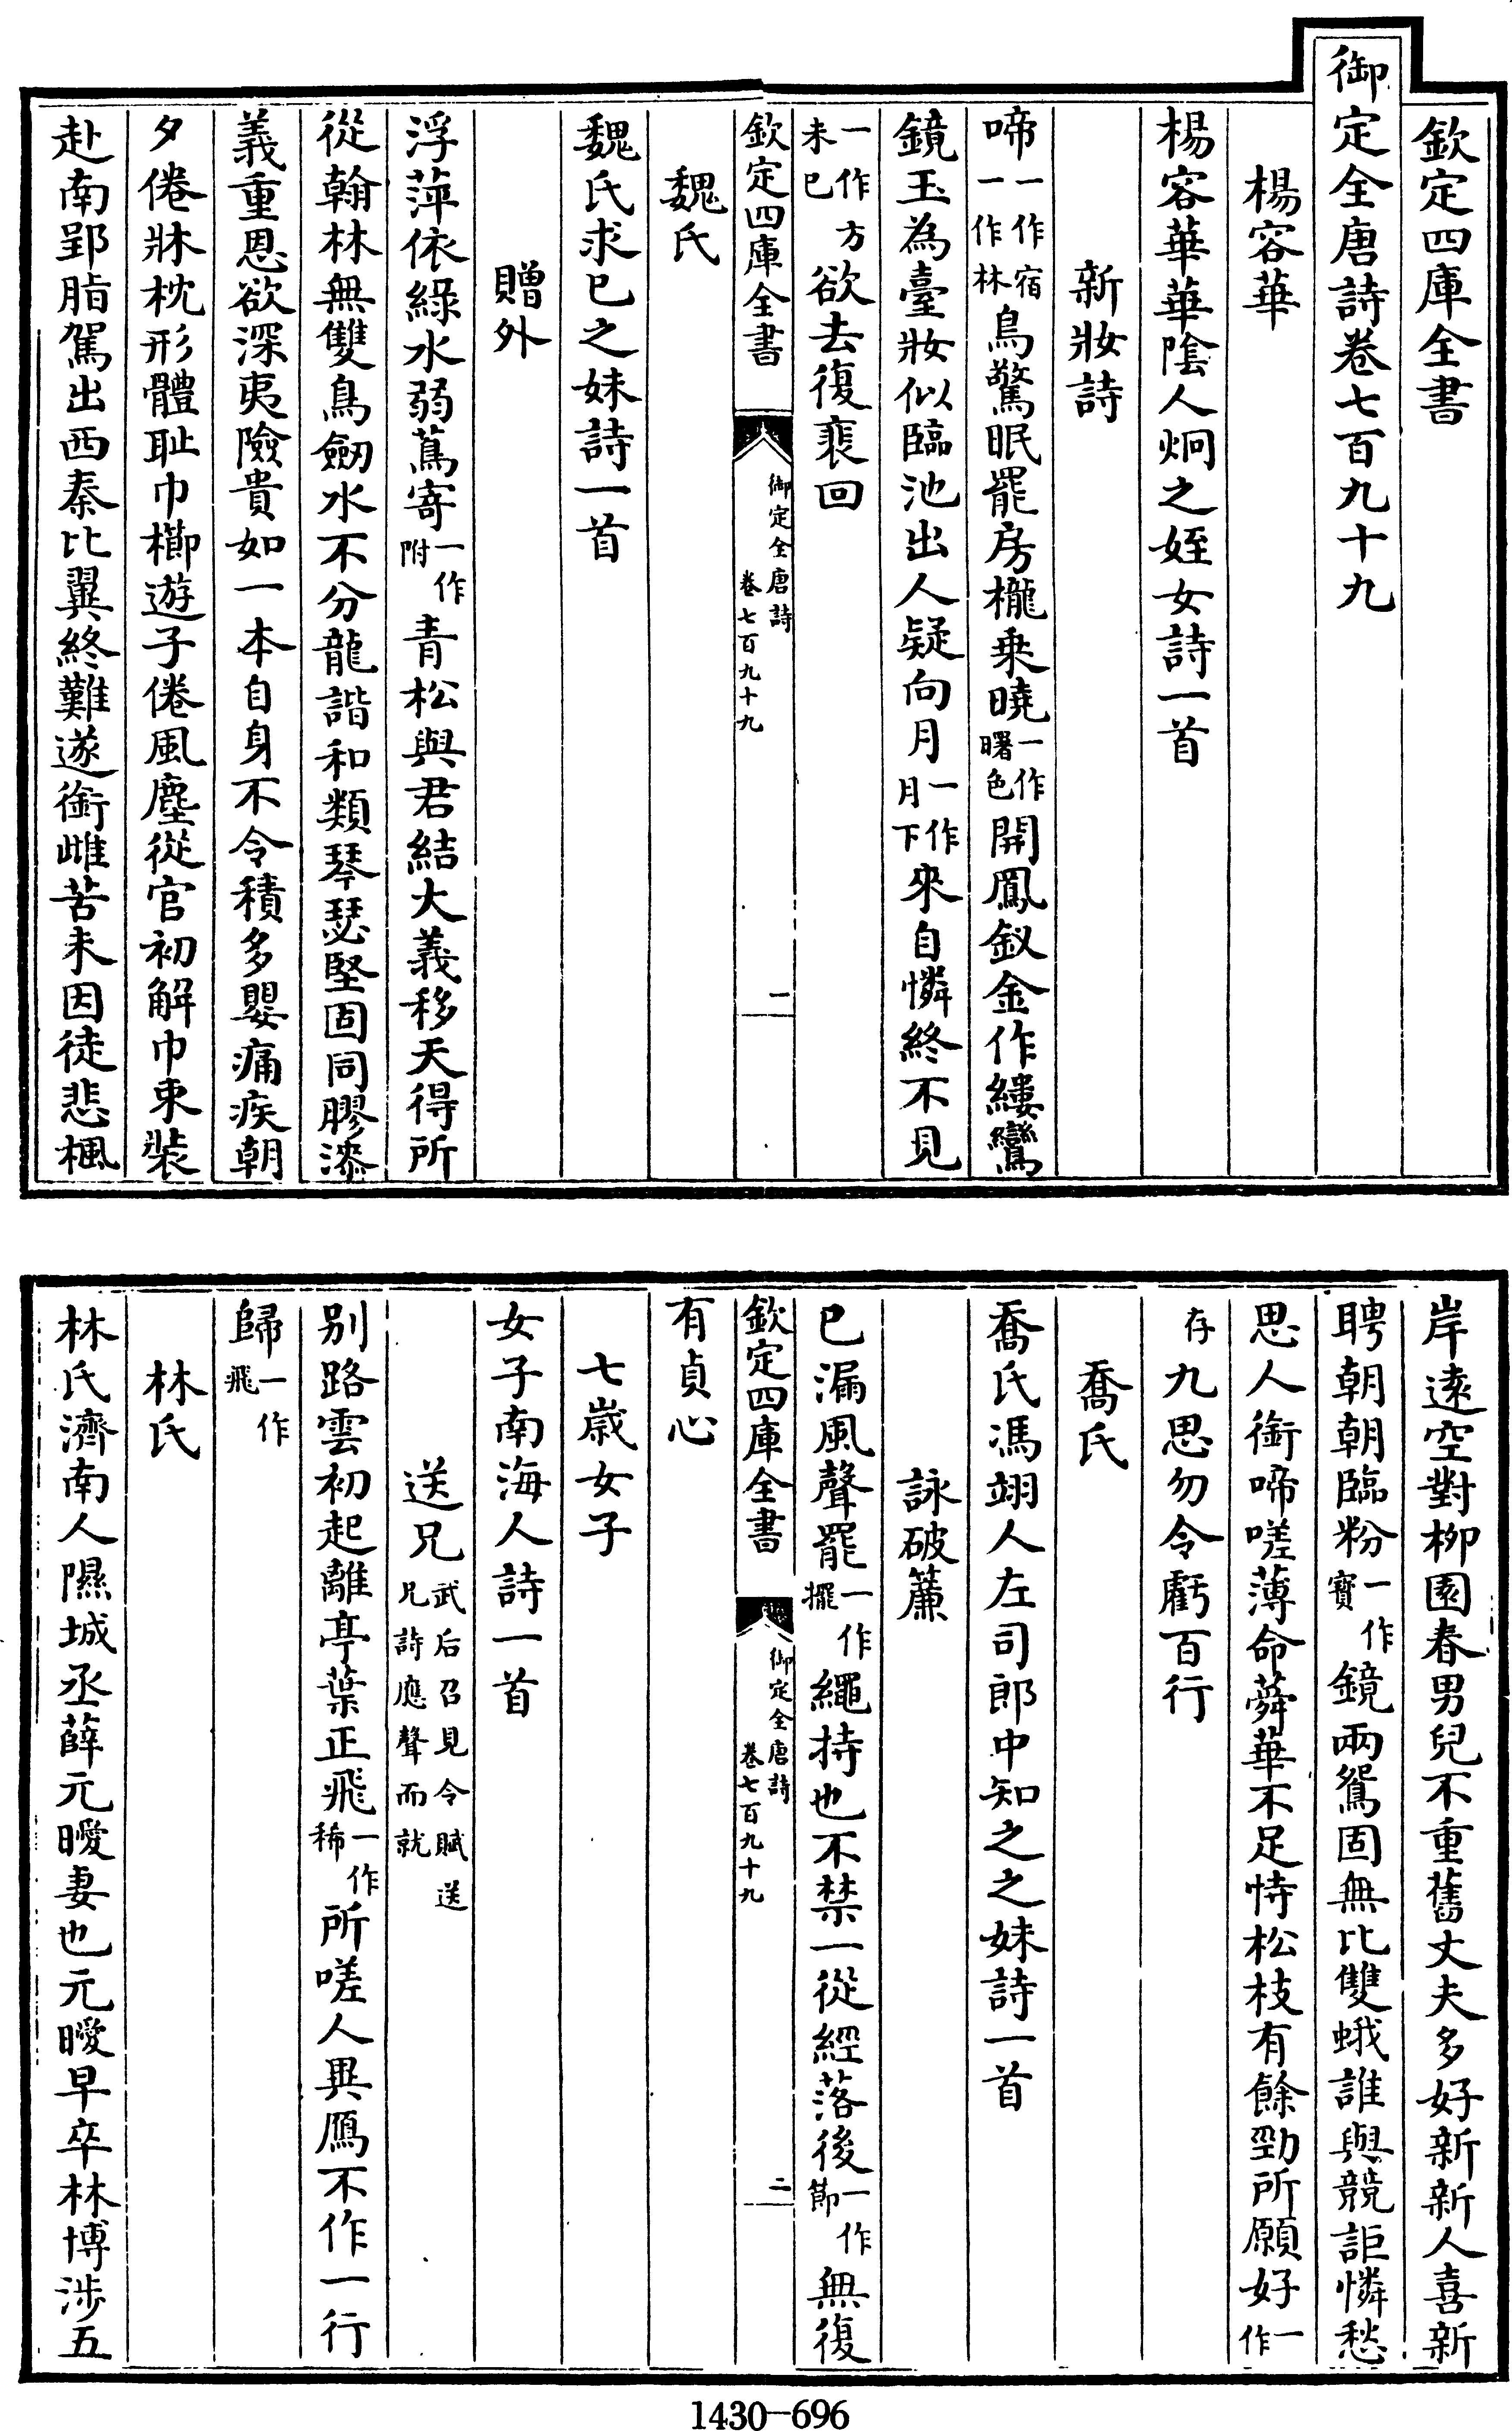 欽定四庫全書
御定全唐詩卷七百九十九
楊容華
楊容華華陰人炯之姪女詩一首
新妝詩
啼一作宿一作林鳥驚眠罷房櫳乗曉一作曙色開鳳釵金作縷鸞
鏡玉為臺妝似臨池出人疑向月一作月下來自憐終不見
一作方未已欲去復裵回
欽定四庫全書
御定全唐詩
卷七百九十九
一
魏氏
魏氏求已之妹詩一首
贈外
浮萍依綠水弱蔦寄一作附青松與君結大義移天得所
從翰林無雙鳥劒水不分龍諧和類琴瑟堅固同膠漆
義重恩欲深夷險貴如一本自身不令積多嬰痛疾朝
夕倦牀枕形體耻巾櫛遊子倦風塵從官初解巾束裝
赴南郢脂駕出西秦比翼終難遂銜雌苦未因徒悲楓
岸遠空對栁園春男兒不重舊丈夫多好新新人喜新
聘朝朝臨粉一作寳鏡兩鴛固無比雙蛾誰與競詎憐愁
思人銜啼嗟薄命蕣華不足恃松枝有餘勁所願好一作
存九思勿令虧百行
喬氏
喬氏馮翊人左司郎中知之之妹詩一首
詠破簾
已漏風聲罷一作擺繩持也不禁一從經落後一作節無復
欽定四庫全書
御定全唐詩
卷七百九十九
二
有貞心
七歳女子
女子南海人詩一首
送兄武后召見令賦送兄詩應聲而就
别路雲初起離亭葉正飛一作稀所嗟人異鴈不作一行
歸一作飛
林氏
林氏濟南人隰城丞薛元曖妻也元曖早卒林博渉五
1430-696